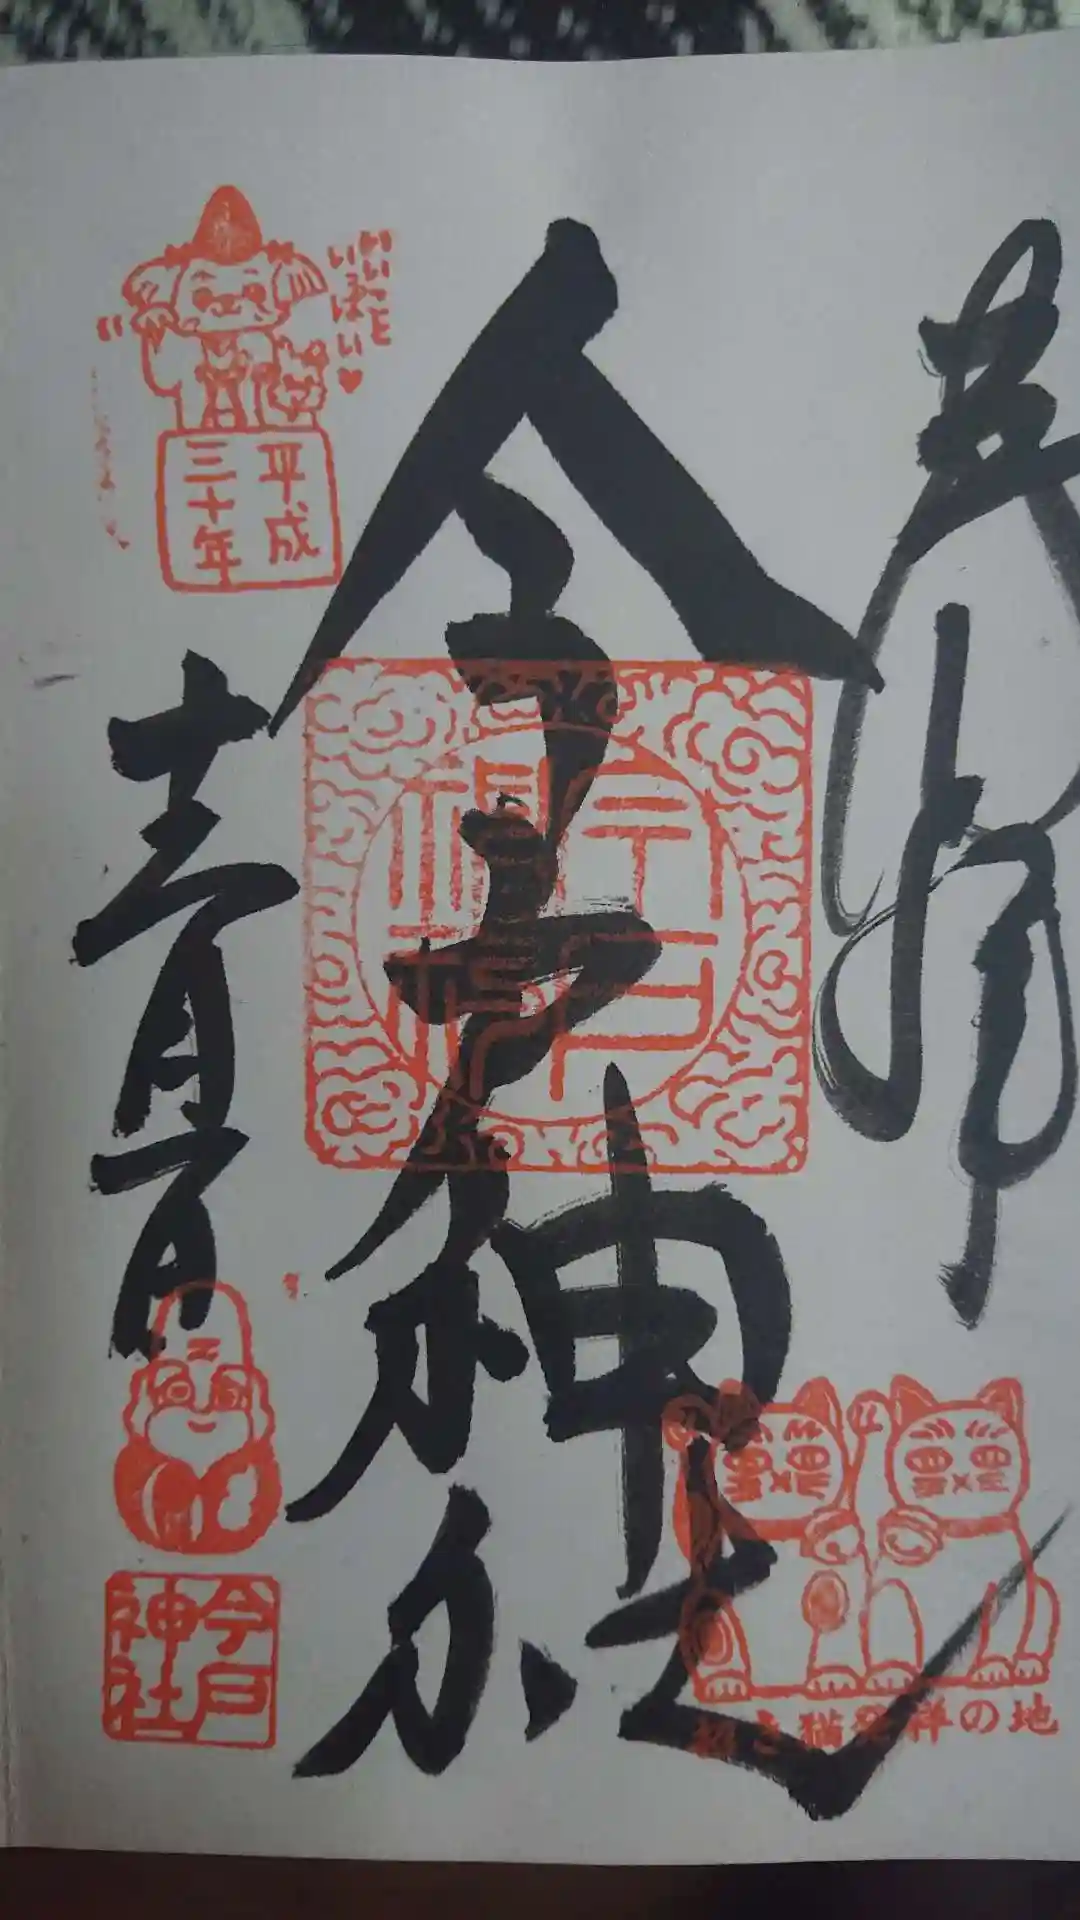 奉拝
今戸神社
今戸
神社
招き猫発祥の地
いいこと
いっぱい♥
平成
三十年
今戸
神社